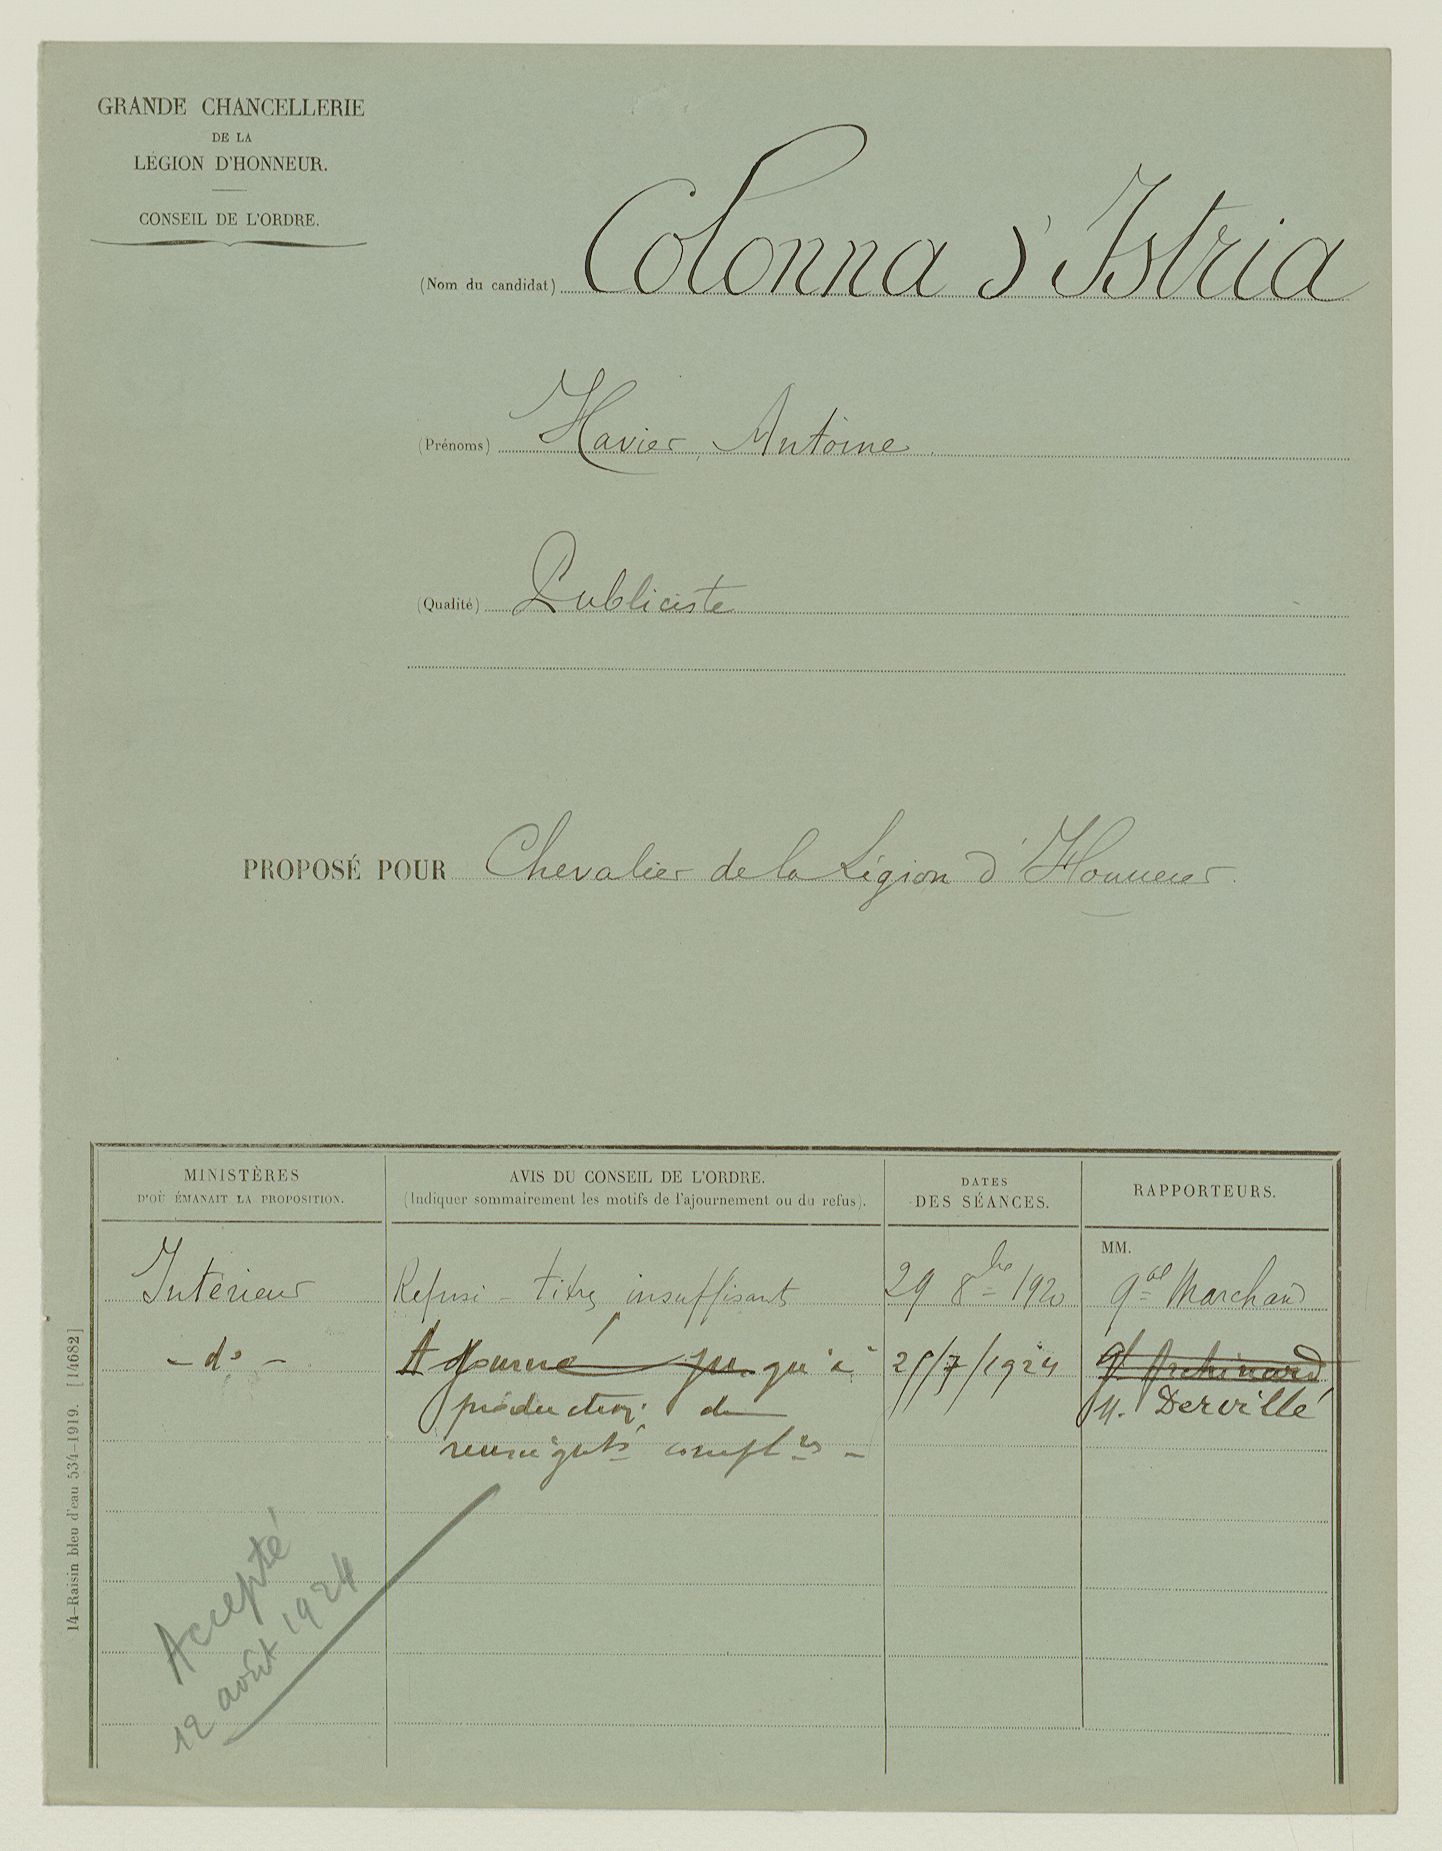 GRANDE CHANCELLERIE
DE LA
LÉGION D'HONNEUR.
CONSEIL DE L'ORDRE.
(Nom du candidat) Colonna d'Istria
(Prénoms) Xavier, Antoine
(Qualité) Publiciste
PROPOSÉ POUR Chevalier de la Légion d'Honneur.
MINISTÈRES
D'OÙ ÉMANAIT LA PROPOSITION.
AVIS DU CONSEIL DE L'ORDRE.
(Indiquer sommairement les motifs de l'ajournement ou du refus).
DATES
DES SÉANCES.
RAPPORTEURS.
MM.
Intérieur Refusé - titres insuffisants 29 8bre 1920 Gal Marchand
- do - Ajourné jusqu'à /7/1924 Gl Archinard
production de M. Dervillé
renseignts compl res -
Accepté
12 août 1924
14-Raisin bleu d'eau 534-1919. [14682]